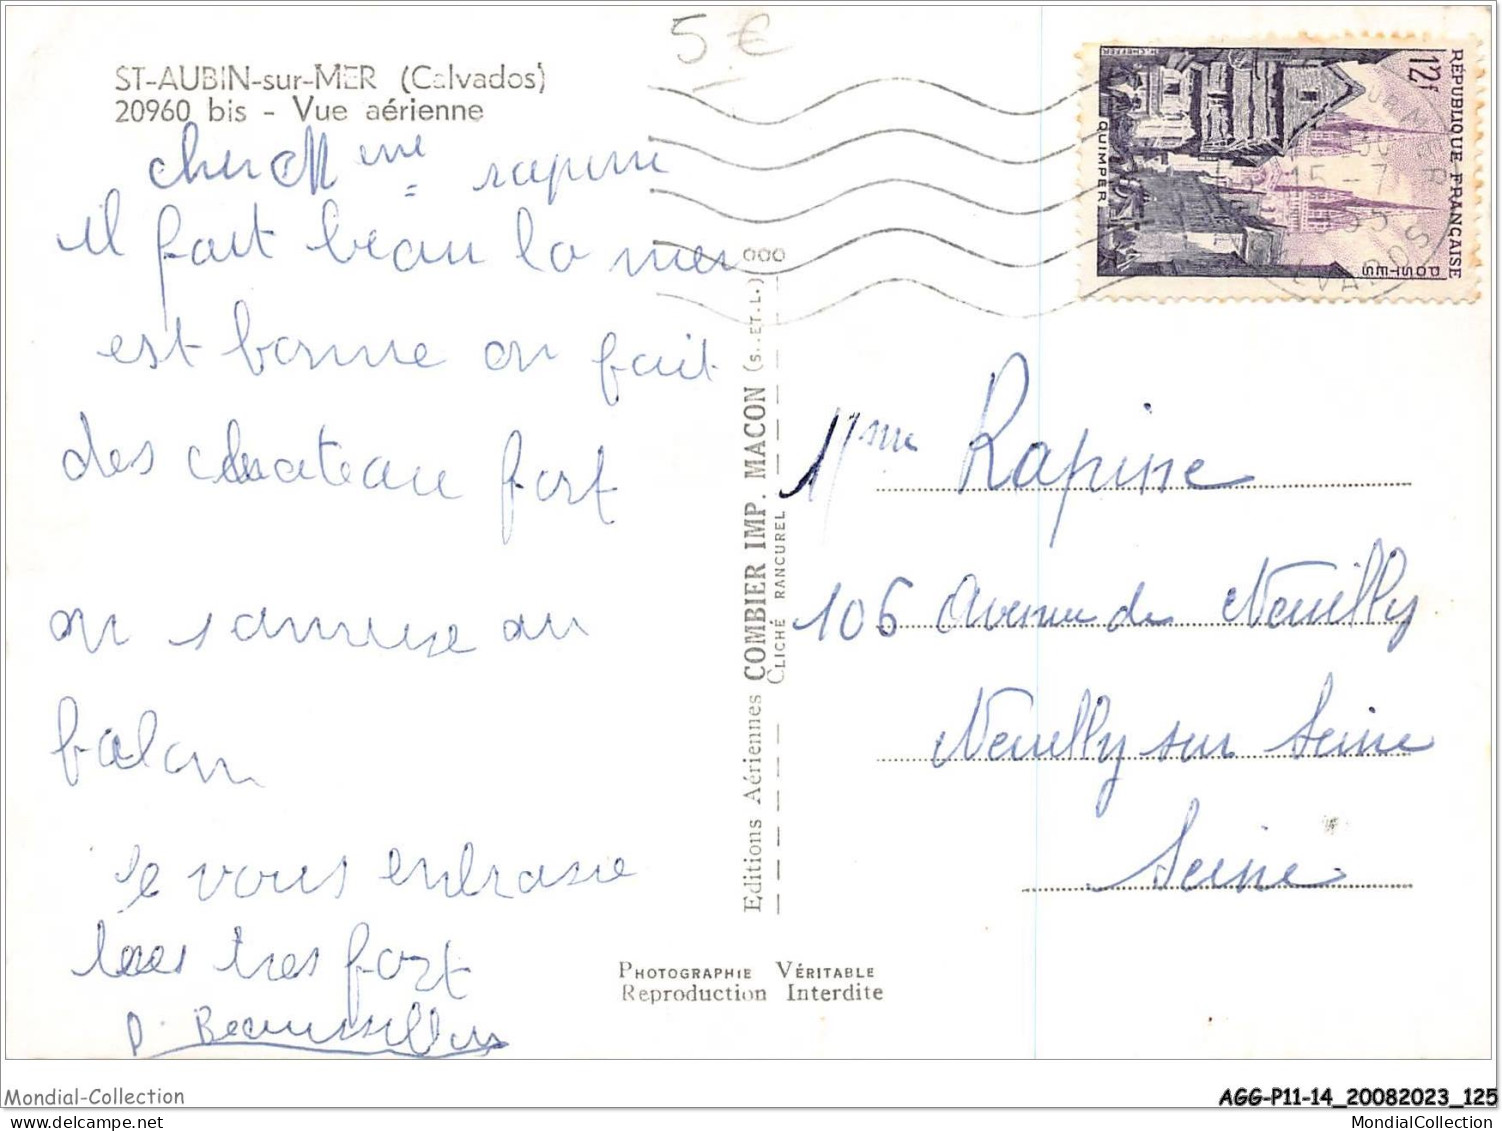 5 €
ST-AUBIN-sur-MER (Calvados)
20960 bis - Vue aérienne
cher Mme rapine
il fait beau la mer
est bonne on fait
des chateau fort
on s'amuse au
balon
je vous embrasse
tres tres fort
P. Beaussillon
Editions Aériennes COMBIER IMP. MACON (S.-ET.L.) OOO
CLICHÉ RANCUREL
PHOTOGRAPHIE VÉRITABLE
Reproduction Interdite
RÉPUBLIQUE FRANÇAISE
12f
POSTES
QUIMPER
15-7
55
Mme Rapine
106 Avenue de Neuilly
Neuilly sur Seine
Seine
Mondial-Collection
AGG-P11-14_20082023_125
MondialCollection